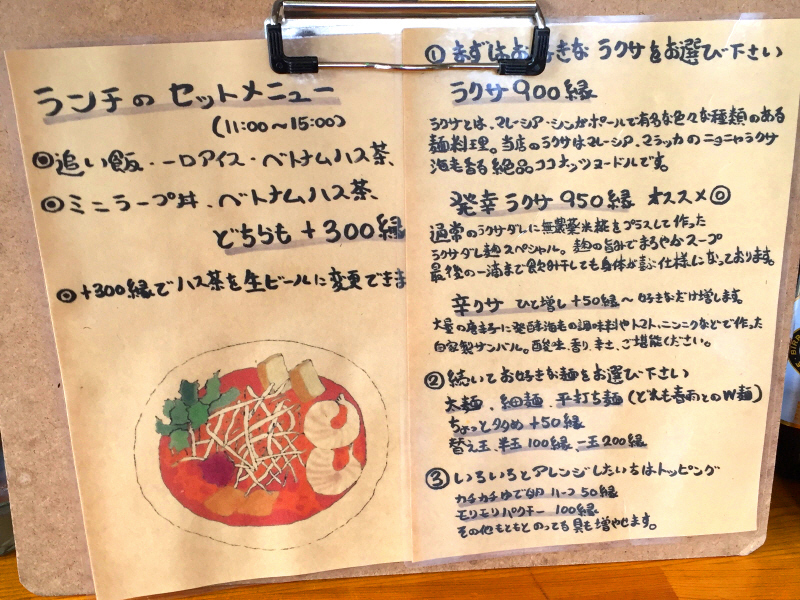 ランチの セットメニュー
(11:00〜15:00)
◎追い飯・一口アイス・ベトナムハス茶、
◎ミニラープ丼、ベトナムハス茶、
どちらも +300縁
◎+300縁でハス茶を生ビールに変更できま
① まずはお好きな ラクサをお選び下さい
ラクサ 900縁
ラクサとは、マレーシア・シンガポールで有名な色々な種類のある
麺料理。当店のラクサはマレーシア、マラッカのニョニャラクサ
海老香る絶品ココナッツヌードルです。
発幸ラクサ 950縁 オススメ◎
通常のラクサダレに無農薬米糀をプラスして作った
ラクサダレ麹スペシャル。麹の旨みでまろやかスープ
最後の一滴まで飲み干しても身体が喜ぶ仕様になっております。
辛クサ ひと増し +50縁〜 好きなだけ増します。
大量の唐辛子に発酵海老の調味料やトマト、ニンニクなどで作った
自家製サンバル。酸味、香り、辛さ、ご堪能ください。
② 続いてお好きな麺をお選び下さい
太麺、細麺、平打ち麺 (どれも春雨とのW麺)
ちょっと多め +50縁
替え玉、半玉 100縁、一玉 200縁
③ いろいろとアレンジしたい方はトッピング
カチカチゆで卵 ハーフ 50縁
モリモリパクチー 100縁
その他もともとのってる具も増やせます。